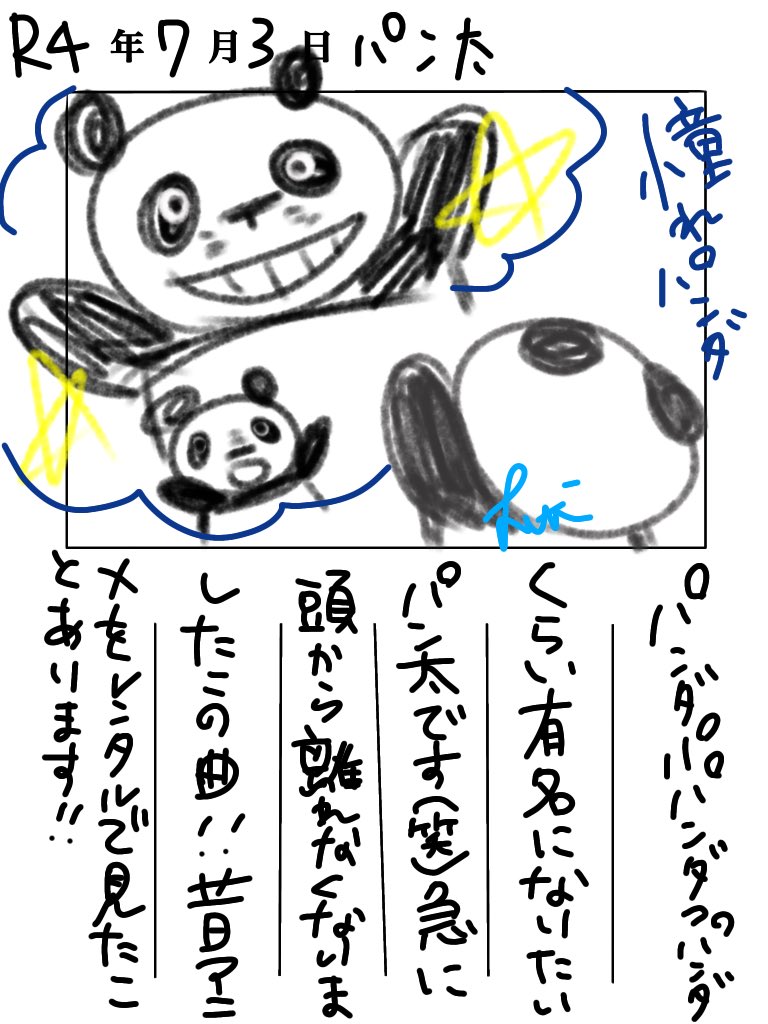 R4年7月3日パン太
憧れパンダ
ruki
パンダパパンダパンダ
くらい有名になりたい
パン太です(笑)急に
頭から離れなくなりま
したこの曲!!昔アニ
メをレンタルで見たこ
とあります!!